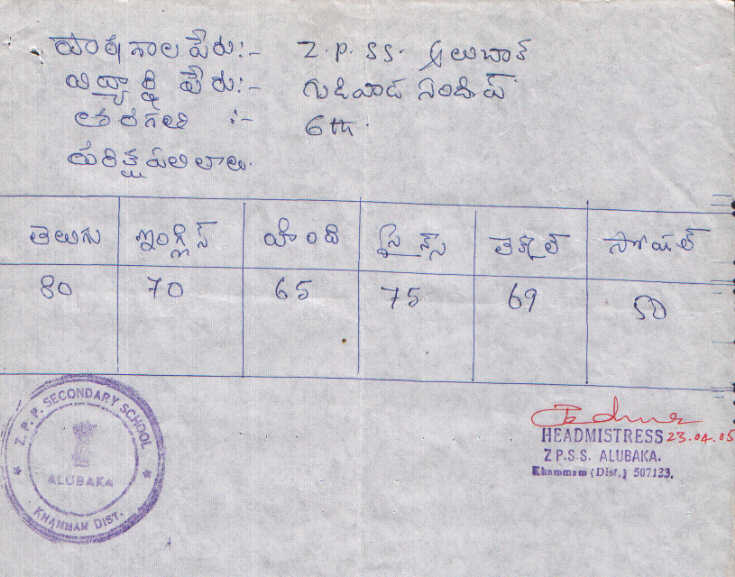 పాఠశాల పేరు:- Z.P.SS. ఆలుబాక
విద్యార్థి పేరు:- గుడివాడ సందీప్
తరగతి :- 6th.
పరీక్ష ఫలితాలు.
తెలుగు ఇంగ్లీస్ హింది సైన్స్ లెక్కల్ సోషల్
80 70 65 75 69 50
Z. P. P. SECONDARY SCHOOL
ALUBAKA
KHAMMAM DIST.
HEADMISTRESS 23.04.05
Z P.S.S. ALUBAKA.
Khammam (Dist.) 507123.